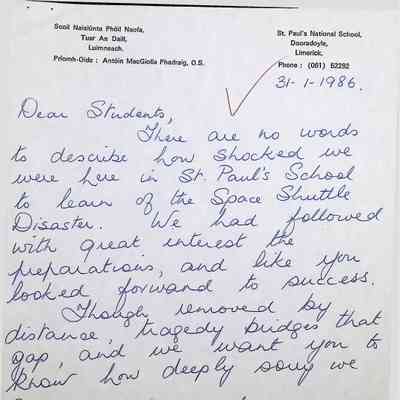 Scoil Naisiúnta Phóil Naofa,
Tuar An Daill,
Luimneach.
Priomh-Oide : Antóin MacGiolla Phadraig, O.S.
St. Paul's National School,
Dooradoyle,
Limerick.
Phone : (061) 52292
31-1-1986.
Dear Students,
There are no words
to describe how shocked we
were here in St. Paul's School
to learn of the Space Shuttle
Disaster. We had followed
with great interest the
preparations, and like you
looked forward to success.
Though removed by
distance, tragedy bridges that
gap, and we want you to
know how deeply sorry we